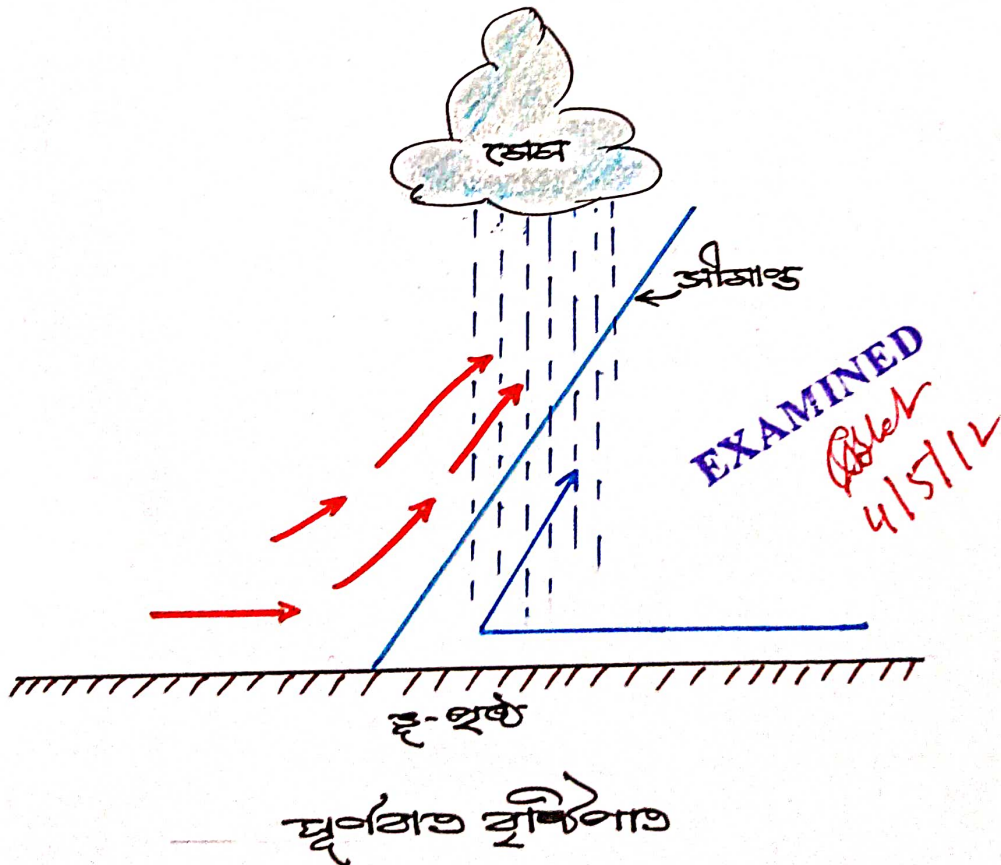 মেঘ
সীমান্ত
EXAMINED
4/5/12
ভূ-পৃষ্ঠ
ঘূর্ণবাত বৃষ্টিপাত